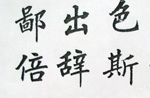 色斯
出辞
鄙倍